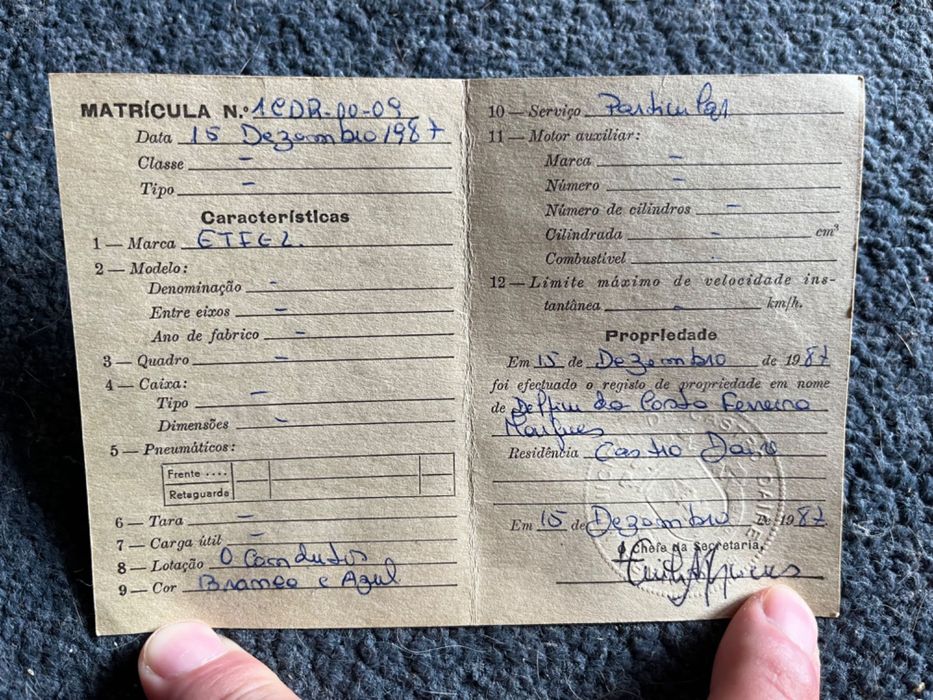 MATRÍCULA N.º 1CDR-00-09
Data 15 Dezembro 1987
Classe -
Tipo -
Características
1 — Marca ETFEL
2 — Modelo:
Denominação -
Entre eixos -
Ano de fabrico -
3 — Quadro -
4 — Caixa:
Tipo -
Dimensões -
5 — Pneumáticos:
Frente ....
Retaguarda
6 — Tara -
7 — Carga útil -
8 — Lotação O Condutor
9 — Cor Branco e Azul
10 — Serviço Particular
11 — Motor auxiliar:
Marca -
Número -
Número de cilindros -
Cilindrada - cm³
Combustível -
12 — Limite máximo de velocidade ins-
tantânea - km/h.
Propriedade
Em 15 de Dezembro de 1987
foi efectuado o registo de propriedade em nome
de Delfim do Porto Ferreira
Marques
Residência Castro Daire
Em 15 de Dezembro de 1987
O Chefe da Secretaria,